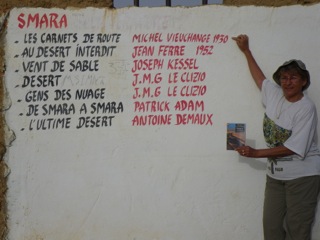 SMARA
- LES CARNETS DE ROUTE MICHEL VIEUCHANGE 1930
- AU DESERT INTERDIT JEAN FERRE 1952
- VENT DE SABLE JOSEPH KESSEL
- DESERT J.M.G LE CLIZIO
- GENS DES NUAGE J.M.G LE CLIZIO
- DE SMARA A SMARA PATRICK ADAM
- L'ULTIME DESERT ANTOINE DEMAUX